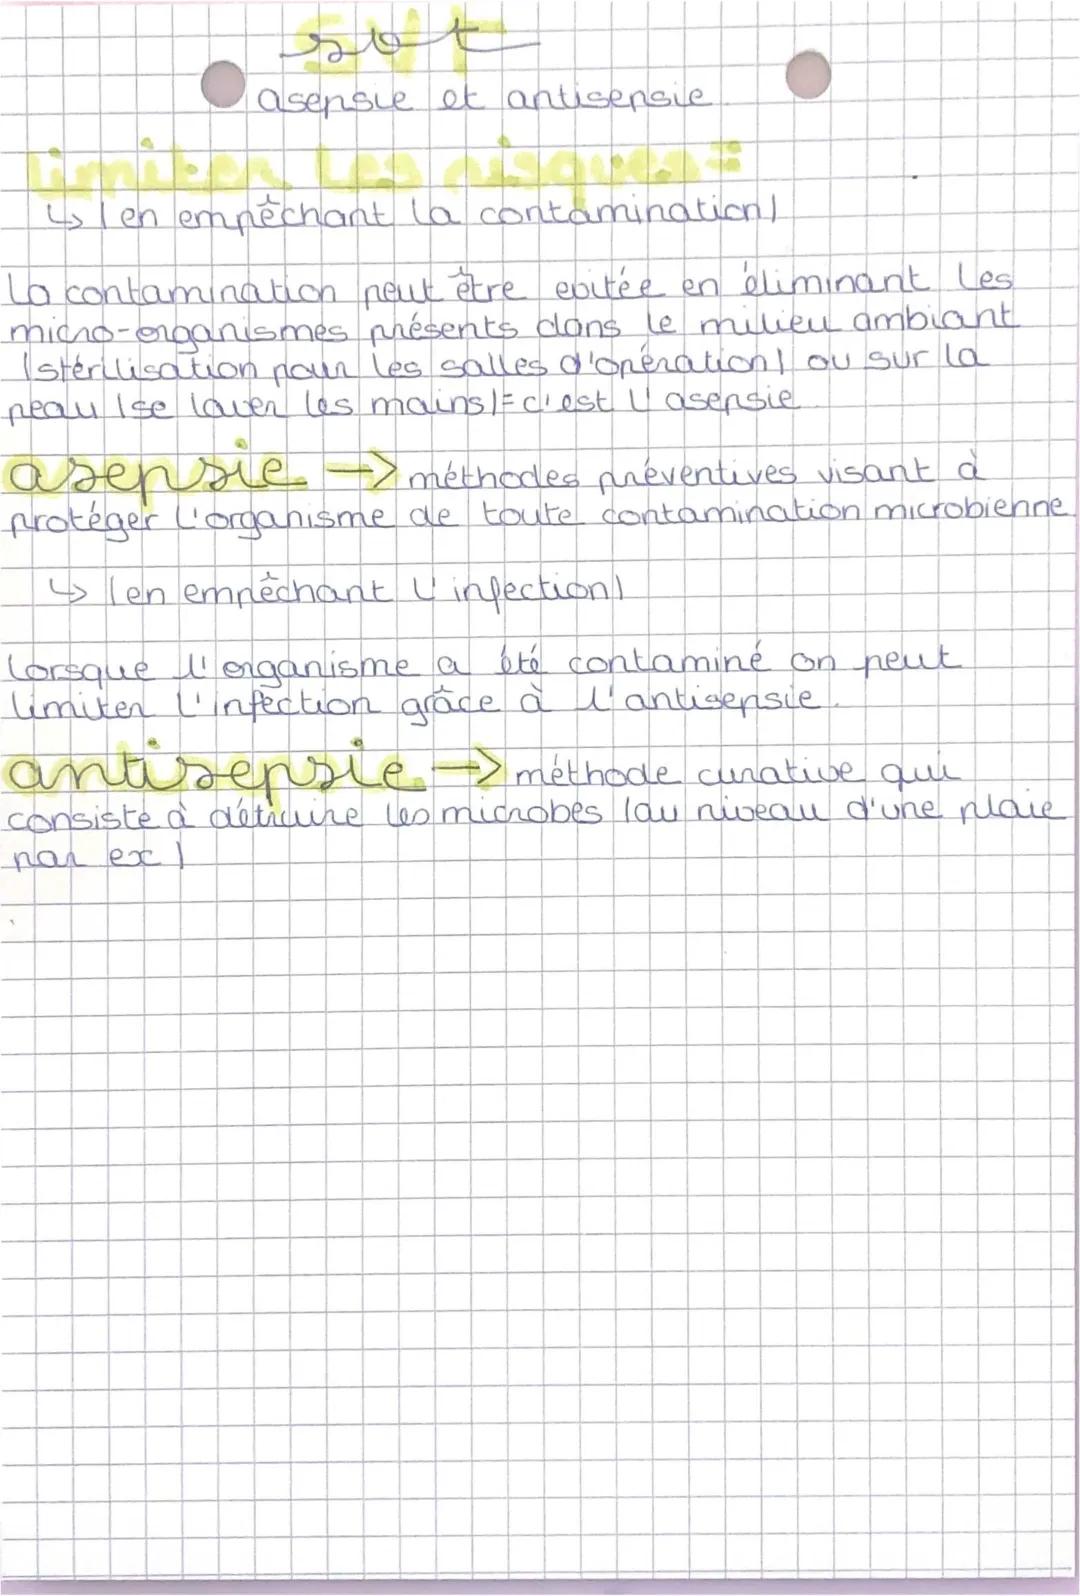 svt
asepsie et antisepsie
limiter les risques =
↳ (en empêchant la contamination)
la contamination peut être evitée en éliminant les
micro-organismes présents dans le milieu ambiant
(stérilisation pour les salles d'opération) ou sur la
peau (se laver les mains) = c'est l'asepsie
asepsie → méthodes préventives visant à
protéger l'organisme de toute contamination microbienne
↳ (en empêchant l'infection)
lorsque l'organisme a été contaminé on peut
limiter l'infection grâce à l'antisepsie.
antisepsie → méthode curative qui
consiste à détruire les microbes (au niveau d'une plaie
par ex)